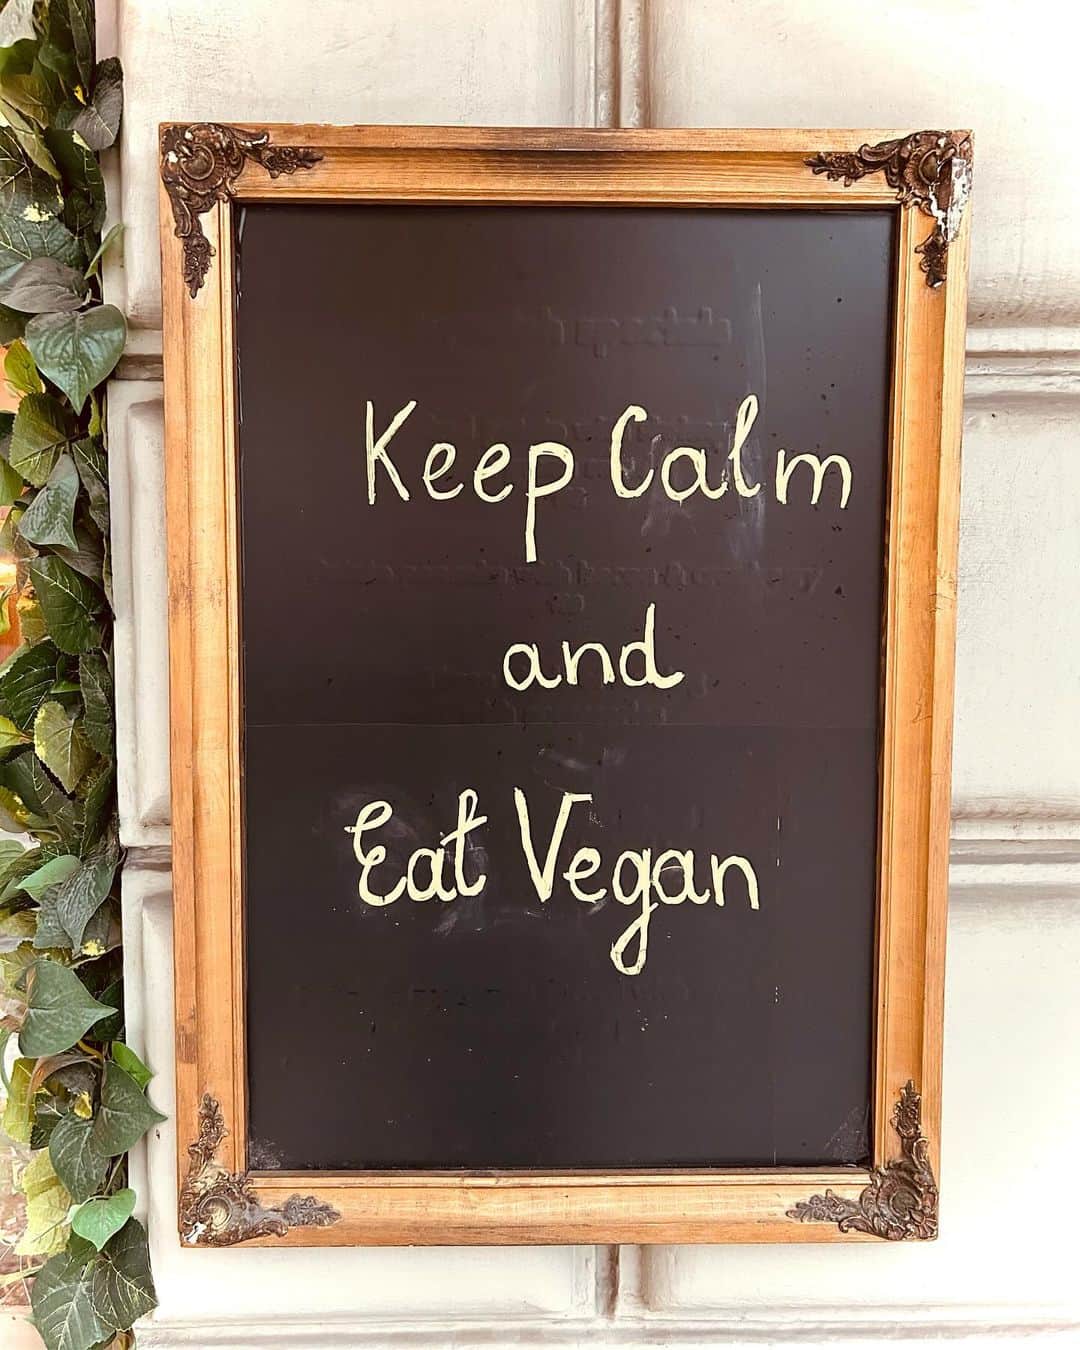 Keep Calm
and
Eat Vegan